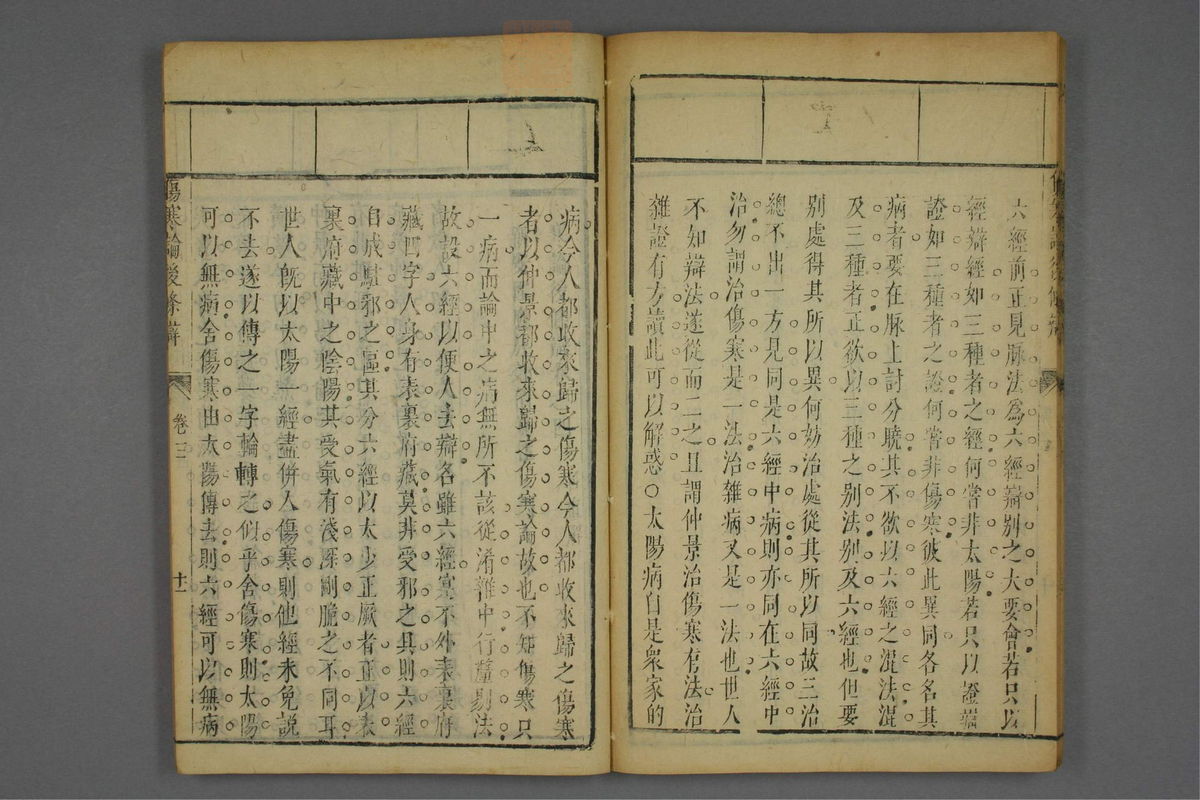 六經前正見脉法爲六經辯別之大要會若只以
經辯經如三種者之經何嘗非太陽若只以證辯
證如三種者之證何嘗非傷寒彼此異同各各其
病者要在脉上討分曉其不欲以六經之混法混
及三種者正欲以三種之別法別及六經也但要
別處得其所以異何妨治處從其所以同故三治
總不出一方見同是六經中病則亦同在六經中
治勿謂治傷寒是一法治雜病又是一法也世人
不知辯法遂從而二之且謂仲景治傷寒有法治
雜證有方讀此可以解惑○太陽病自是衆家的
病今人都收來歸之傷寒今人都收來歸之傷寒
者以仲景都收來歸之傷寒論故也不知傷寒只
一病而論中之病無所不該從淆雜中行釐剔法
故設六經以便人去辯名雖六經寔不外表裏府
藏四字人身有表裏府藏莫非受邪之具則六經
自成駐邪之區其分六經以太少正厥者正以表
裏府藏中之陰陽其受氣有淺深剛脆之不同耳
世人旣以太陽一經盡併入傷寒則他經未免說
不去遂以傳之一字輪轉之似乎舍傷寒則太陽
可以無病舍傷寒由太陽傳去則六經可以無病
傷寒論後條辯
卷三
十一